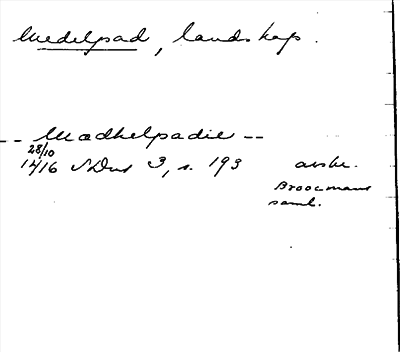 Medelpad, landskap.
-- Mædhelpadie --
28/10
1416 SDns 3, s. 193 avskr.
Broocmans
saml.